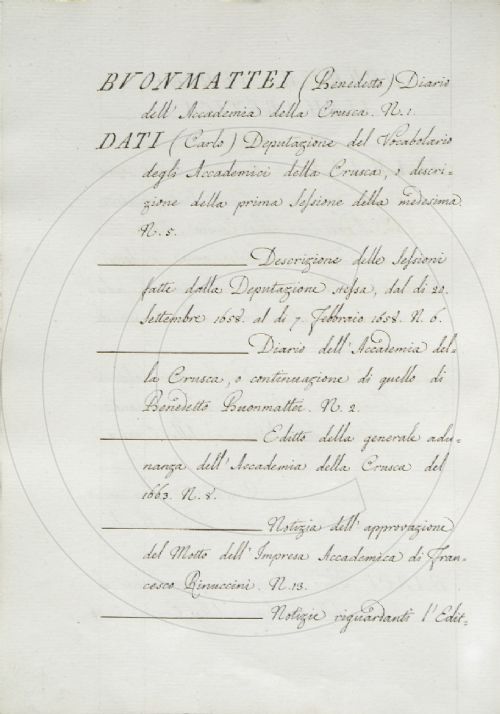 BVONMATTEI (Benedetto) Diario
dell' Accademia della Crusca. N. 1.
DATI (Carlo) Deputazione del Vocabolario
degli Accademici della Crusca, o descri-
zione della prima Sessione della medesima
N. 5.
Descrizione delle Sessioni
fatte dalla Deputazione stessa, dal dì 20.
Settembre 1658. al dì 7. Febbraio 1658. N. 6.
Diario dell' Accademia del-
la Crusca, o continuazione di quello di
Benedetto Buonmattei. N. 2.
Editto della generale adu-
nanza dell' Accademia della Crusca del
1663. N. 8.
Notizia dell' approvazione
del Motto dell' Impresa Accademica di Fran-
cesco Rinuccini. N. 13.
Notizie riguardanti l' Edit-